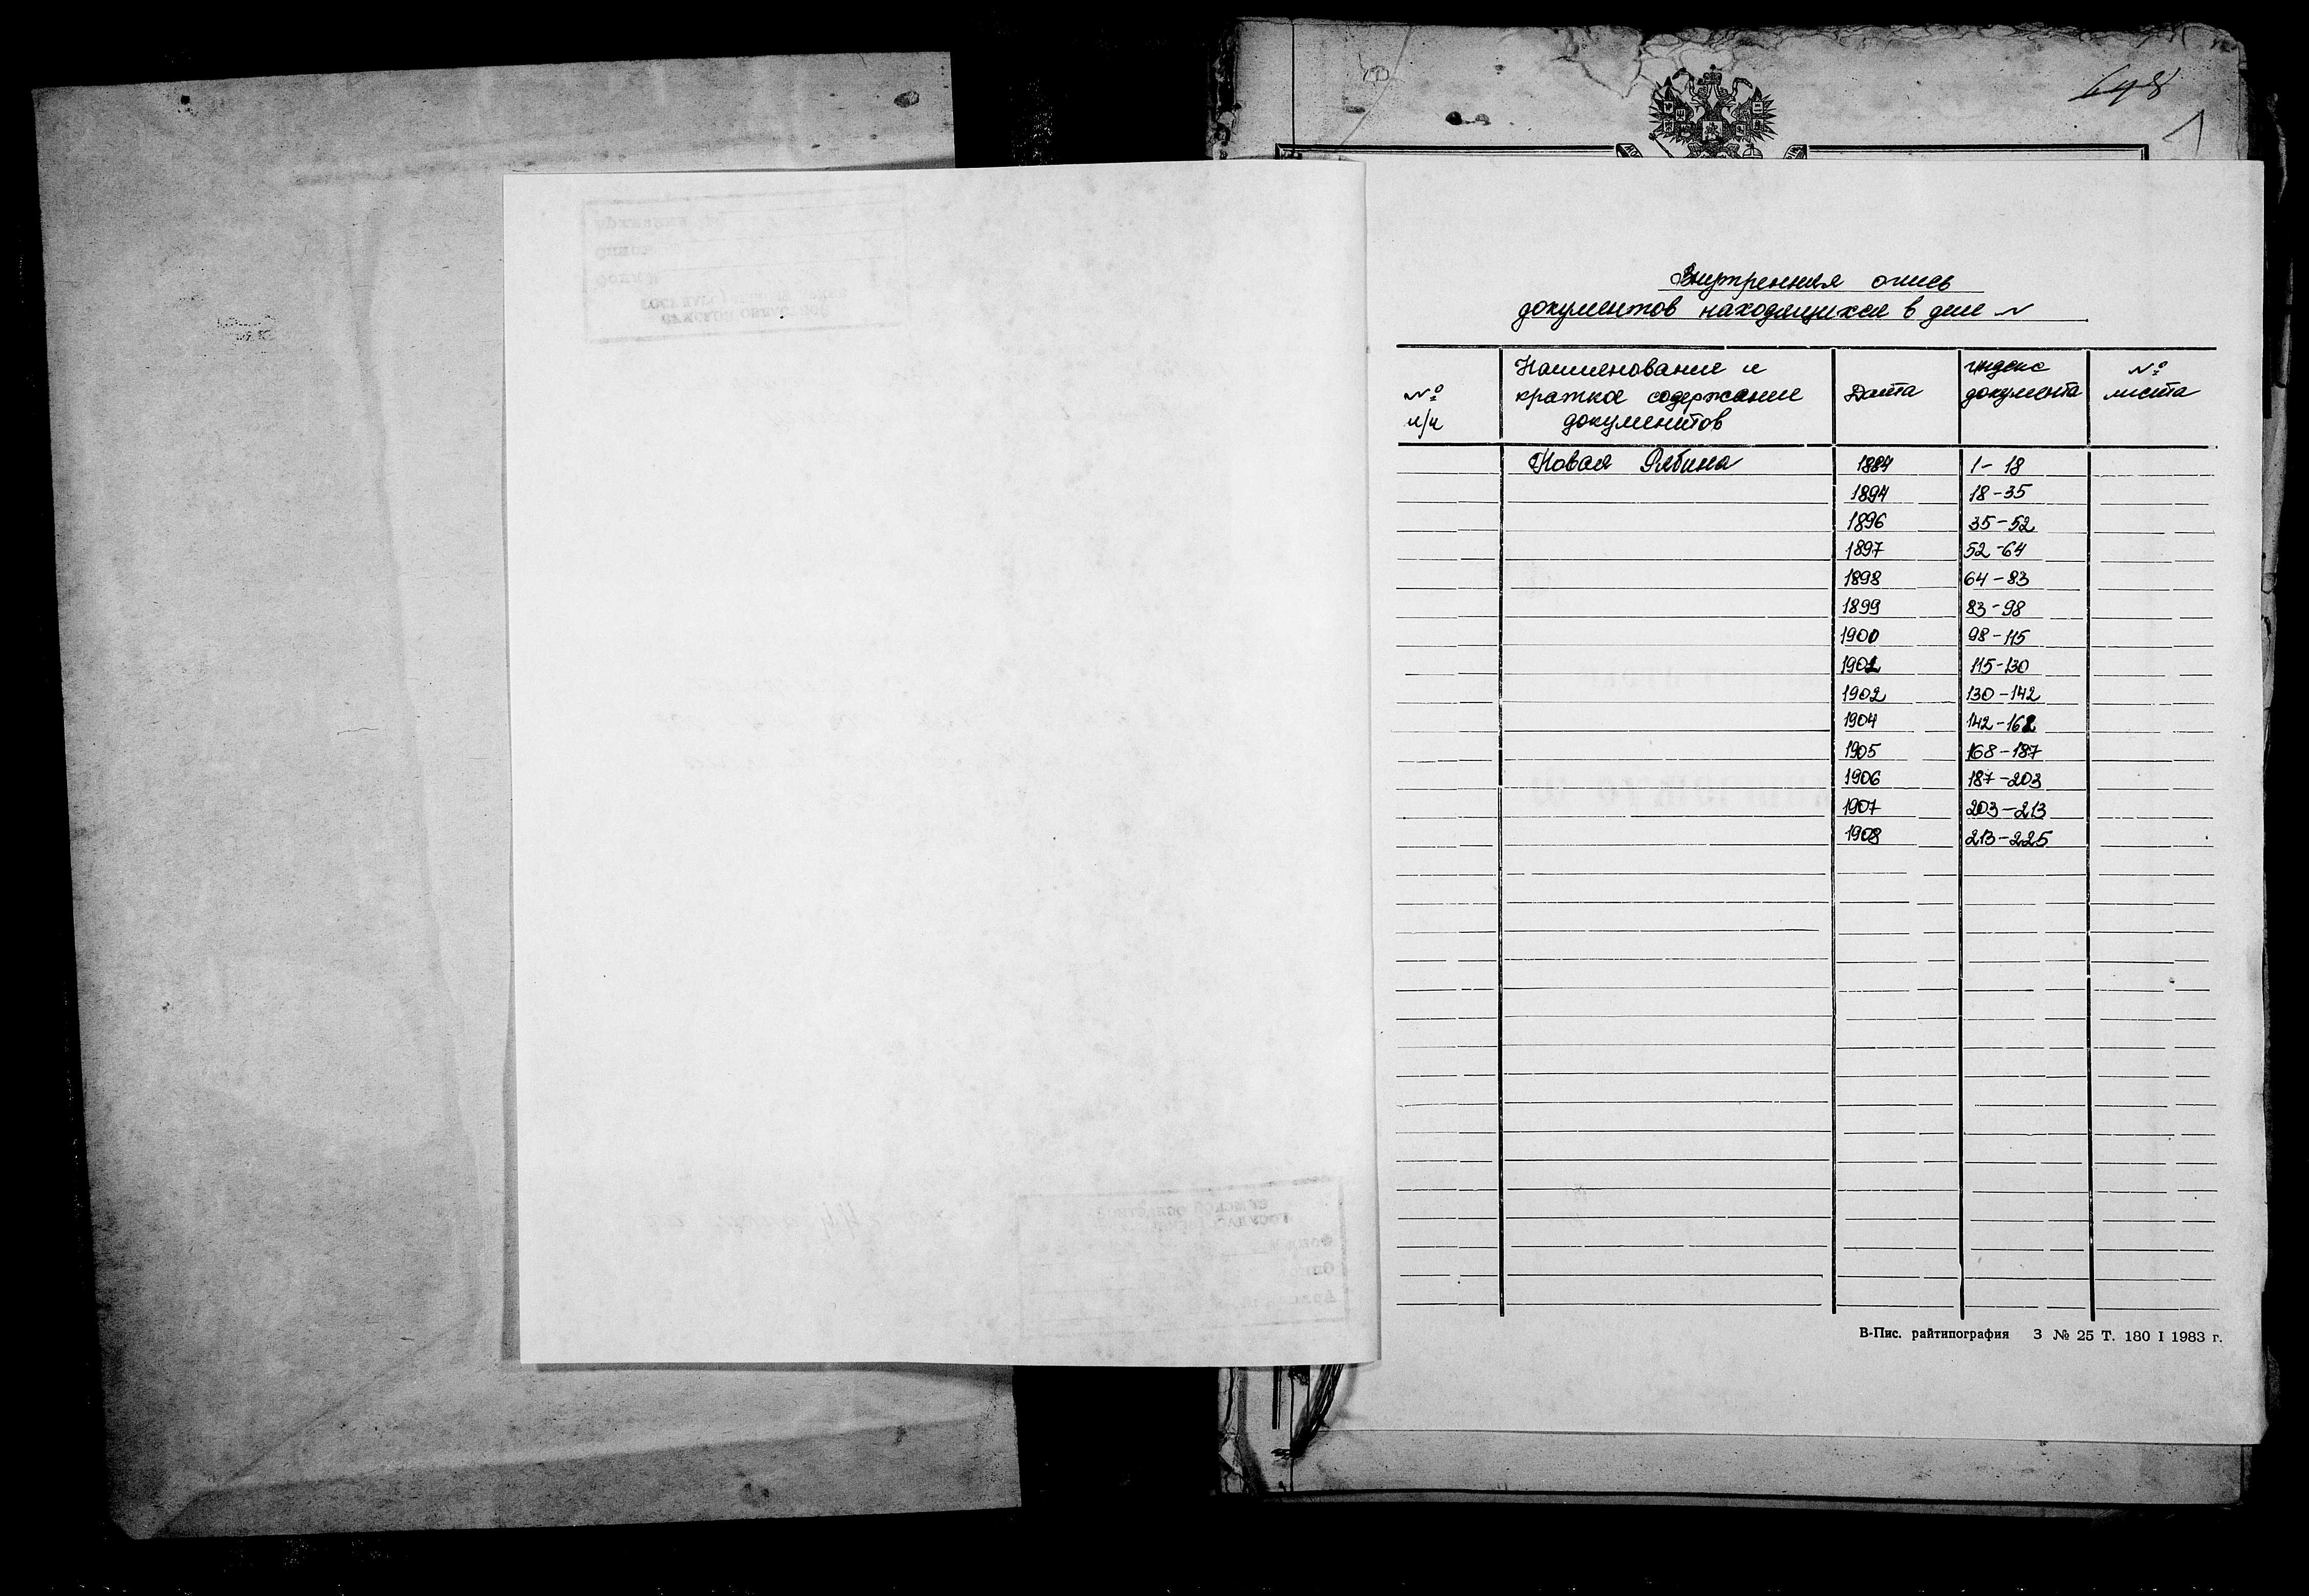 648
1
Внутренняя опись
документов находящихся в деле №
№ п/п
Наименование и краткое содержание документов
Дата
индекс документа
№ листа
Новая Рябина 1884 1-18
1894 18-35
1896 35-52
1897 52-64
1898 64-83
1899 83-98
1900 98-115
1901 115-130
1902 130-142
1904 142-168
1905 168-187
1906 187-203
1907 203-213
1908 213-225
В-Пис. райтипография З № 25 Т. 180 I 1983 г.